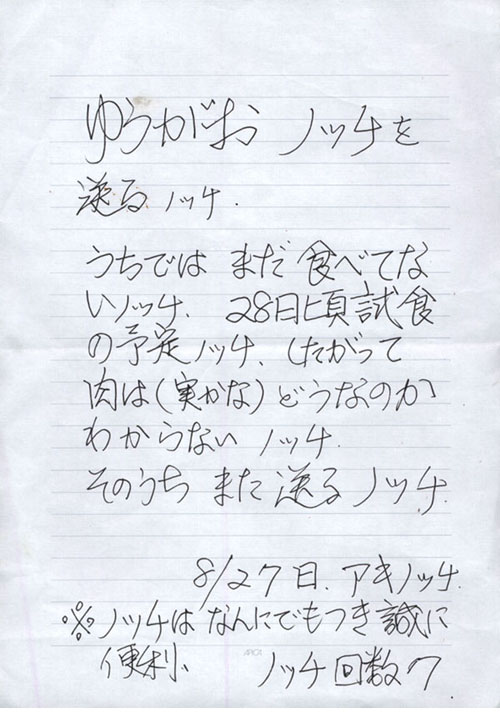 ゆうがお ノッチを
送る ノッチ.
うちでは まだ 食べてな
いノッチ. 28日頃試食
の予定ノッチ、したがって
肉は(実かな)どうなのか
わからない ノッチ.
そのうち また 送る ノッチ.
8/27日. アキノッチ.
※ノッチは なんにでもつき 誠に
便利、 ノッチ回数7
APICA